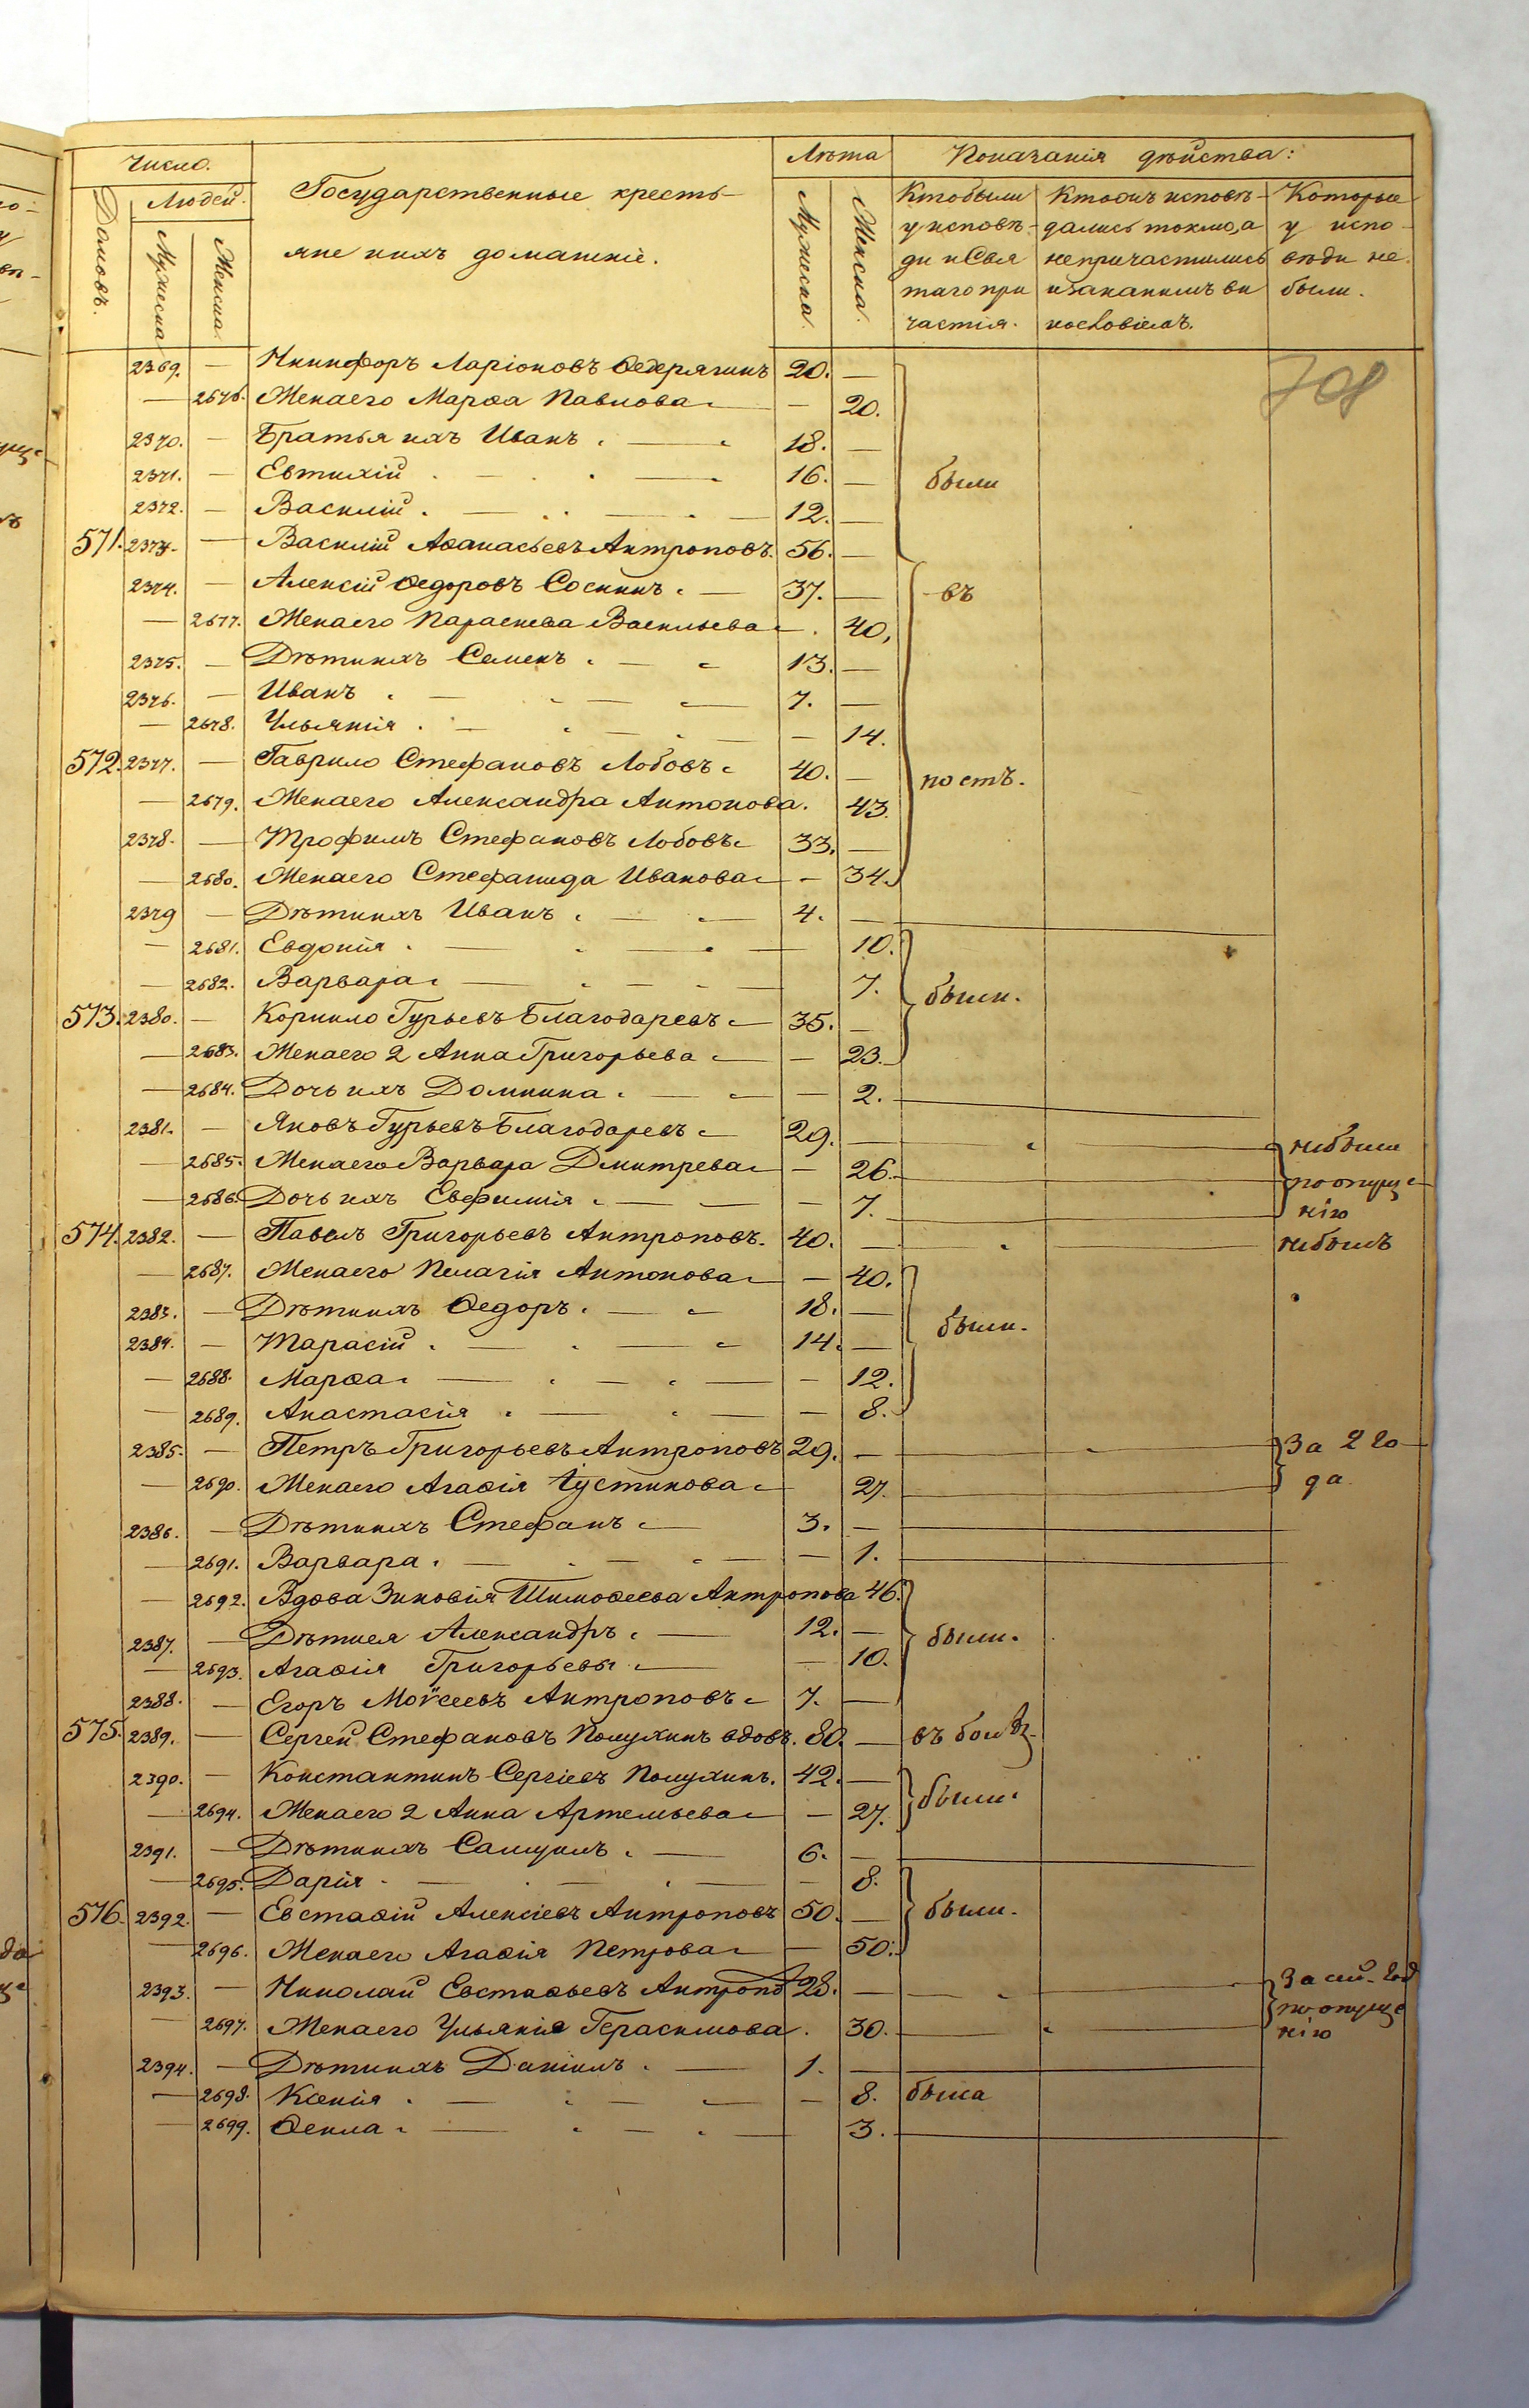 Число.
Людей.
Домовъ.
Мужеска
Женска.
Государственные кресть-
яне и ихъ домашніе.
Лѣта
Мужеска.
Женска.
Показанія дѣйства:
Кто были
у исповѣ-
ди и Свя
таго при
частія.
Кто ихъ исповѣ-
дались токмо, а
не причастились
и за какимъ ви
нословіемъ.
Которые
у испо-
вѣди не
были.
708
2369. — Никифоръ Ларіоновъ Ѳедерягинъ 20. —
— 2676. Жена его Марѳа Павлова — 20.
2370. — Братья ихъ Иванъ 18. —
2371. — Евтихій 16. — были
2372. — Василій 12. —
571. 2373. — Василій Аѳанасьевъ Антроповъ. 56. —
2374. — Алексій Ѳедоровъ Соснинъ 37. — въ
— 2677. Жена его Параскева Васильева 40.
2375. — Дѣти ихъ Семенъ 13. —
2376. — Иванъ 7. —
— 2678. Ульянія — 14.
572. 2377. — Гаврило Стефановъ Лобовъ 40. — постъ.
— 2679. Жена его Александра Антонова. 43.
2378. — Трофимъ Стефановъ Лобовъ 33. —
— 2680. Жена его Стефанида Иванова — 34.
2379 — Дѣти ихъ Иванъ 4. —
— 2681. Евдокія 10.
— 2682. Варвара 7. были.
573. 2380. — Корнило Гурьевъ Благодаревъ 35. —
— 2683. Жена его 2 Анна Григорьева — 23.
— 2684. Дочь ихъ Домнина — 2.
2381. — Яковъ Гурьевъ Благодаревъ 29. — небыли
— 2685. Жена его Варвара Дмитрева — 26. по опуще
— 2686. Дочь ихъ Евфимія — 7. нію
574. 2382. — Павелъ Григорьевъ Антроповъ. 40. — небылъ
— 2687. Жена его Пелагія Антонова — 40.
2383. — Дѣти ихъ Ѳедоръ 18. — были.
2384. — Тарасій 14. —
— 2688. Марѳа — 12.
— 2689. Анастасія — 8.
2385. — Петръ Григорьевъ Антроповъ 29. — За 2 го
— 2690. Жена его Агаѳія Іустинова 27. да
2386. — Дѣти ихъ Стефанъ 3. —
— 2691. Варвара — 1.
— 2692. Вдова Зиновія Тимоѳеева Антропова 46.
2387. — Дѣти ея Александръ 12. — были.
— 2693. Агаѳія Григорьевы — 10.
2388. — Егоръ Моѵсеевъ Антроповъ 7. —
575. 2389. — Сергей Стефановъ Полухинъ вдовъ. 80. —
2390. — Константинъ Сергіевъ Полухинъ. 42. — были
— 2694. Жена его 2 Анна Артемьева — 27.
2391. — Дѣти ихъ Самуилъ 6. —
— 2695. Дарія — 8.
576. 2392. — Евстаѳій Алексіевъ Антроповъ 50. — были.
— 2696. Жена его Агаѳія Петрова — 50.
2393. — Николай Евстаѳьевъ Антропо 28. — За сей год
— 2697. Жена его Ульянія Герасимова. 30. по опуще
нію
2394. — Дѣти ихъ Даніилъ 1. —
— 2698. Ксенія — 8. была
— 2699. Ѳекла 3.